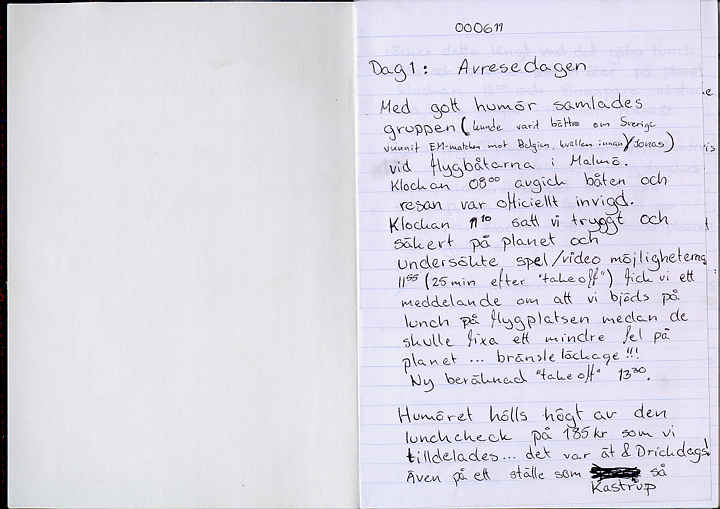 000611
Dag 1: Avresedagen
Med gott humör samlades
gruppen (kunde varit bättre om Sverige
vunnit EM-matchen mot Belgien, kvällen innan)/Jonas)
vid flygbåtarna i Malmö.
Klockan 08⁰⁰ avgick båten och
resan var officiellt invigd.
Klockan 11¹⁰ satt vi tryggt och
säkert på planet och
undersökte spel/video möjligheterna
11⁵⁵ (25 min efter "take off") fick vi ett
meddelande om att vi bjöds på
lunch på flygplatsen medan de
skulle fixa ett mindre fel på
planet ... bränsleläckage !!!
Ny beräknad "take off" 13³⁰.
Humöret hölls högt av den
lunchcheck på 185 kr som vi
tilldelades... det var ät & Drickdags!
Även på ett ställe som så
Kastrup